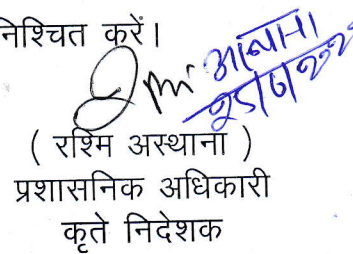 निश्चित करें।
( रश्मि अस्थाना )
प्रशासनिक अधिकारी
कृते निदेशक